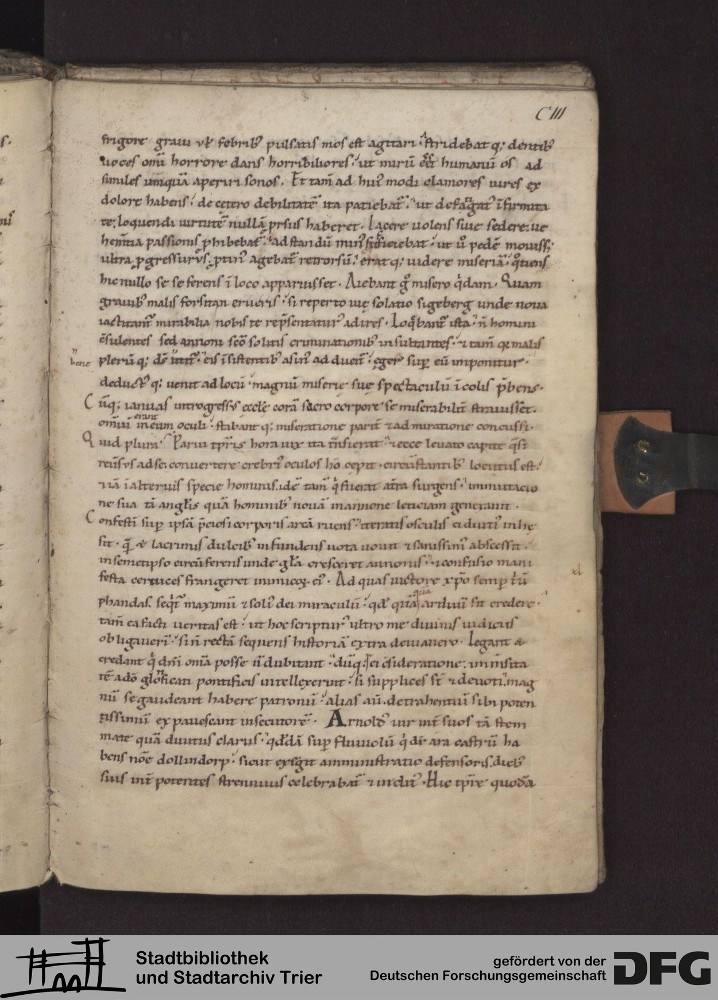 CIII
frigore graui ul febrib; pulsatis mos est agitari. stridebat q; dentib;
uoces omi horrore dans horribiliores. ut mirũ eēt humanũ os ad
similes umquã aperiri sonos. Et tam̃ ad hui modi clamores uires ex
dolore habens. de cetero debilitatẽ ita patiebat̃. ut
te; loquendi uirtutẽ nullã p̃rsus haberet. Iacere uolens siue sedere. ue
hemtia passionis phibebat̃. ad standũ ut ũ pedẽ mouiss;
ultra p̃gressurus. agebat̃ retrorsũ. erat q; uidere miseriã. q̊tiens
hic nullo se se ferens ĩ loco apparuisset. Aiebant g̊ misero q̊dam. Quam
grauib; malis forsitan erueris. si reperto uie solatio sigeberg unde noua
iactitant̃ mirabilia nobis te rep̃sentatur adires. Loq̃bant̃ ista. ñ homini
c̃sulentes sed annoni sc̃o solitis criminationib; insultantes. & tam̃ qr malis
plerũ q; eis ĩsistentib; asin; ad duct̃. eger sup eũ imponitur.
deduct; q; uenit ad locũ. magnũ miserie sue spectaculũ ĩcolis p̃bens.
Cũq; ianuas introgressus eccl̃e corã sacro corpore se miserabilit̃ strauisset.
omĩũ in eum erant oculi. stabant q; miseratione parit̃ & ad miratione concussi.
Quid plura. Parui tp̃ris hora uix ita t̃nsierat & ecce leuato capite q̃si
reuersus ad se. convertere crebri; oculos hõ cepit. circũstantib; locutus est.
& iã ĩ alterius speciẽ hominis. idẽ tam̃ q̊ fuerat at̃ra surgens. immutatio
ne sua tã anglis quã hominib; nouã in annone leticiam generauit.
Confesti sup ipsã p̃ciosi corporis arcã ruens. iteratis osculis ei diuti; inhe
sit. q̃ & lacrimis dulcib; infundens uota uouit & sanissim; abscessit.
in semetipso circũferens unde gl̃a cresceret annonis. & confusio mani
festa ceruices frangeret inimicorũ ei;. Ad quas uictore xp̃o semp t̃ũ
phandas. seqt̃ maximũ & solũ; dei miraculũ. qd̃ quã quã arduũ sit credere.
tam̃ ea facti ueritas est. ut hoc scriptur; ultro me diuinis iudiciis
obligauerĩ. si ñ rectã sequens historiã extra deuiauero. Legant &
credant q̊ dñi om̃ia posse ñ dubitant. dũq; ei c̃sideratione; in inusita
tẽ adõ glorificati pontificis intellexerint. si supplices st̃ & deuoti. mag
nũ se gaudeant habere patronũ. alias aũ detrahentiũ sibi poten
tissimũ ex pauescant insecutorẽ. Arnold; uir int̃ suos tã stem
mate quã diuitiis clarus. qd̃dã sup fluuiolũ q̊ dr̃ ara castrũ ha
bens nõe dollindorp. sicut exegit amministratio defensoris. dieb;
suis int̃ potentes strennuus celebrabat̃ & indit;. Hic tp̃re quodã
Stadtbibliothek
und Stadtarchiv Trier
gefördert von der
Deutschen Forschungsgemeinschaft
DFG